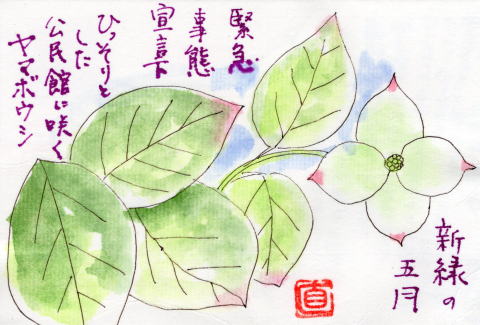 緊急
事態
宣言下
ひっそりと
した
公民館に咲く
ヤマボウシ
新緑の
五月
直